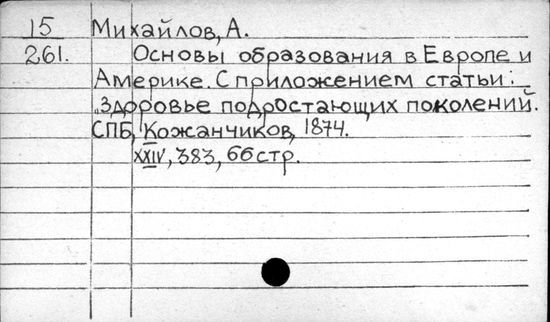 15 Михайлов, А.
261. Основы образования в Европе и
Америке. С приложением статьи:
„Здоровье подростающих поколений.
СПБ, Кожанчиков, 1874.
XXIV, 383, 66 стр.